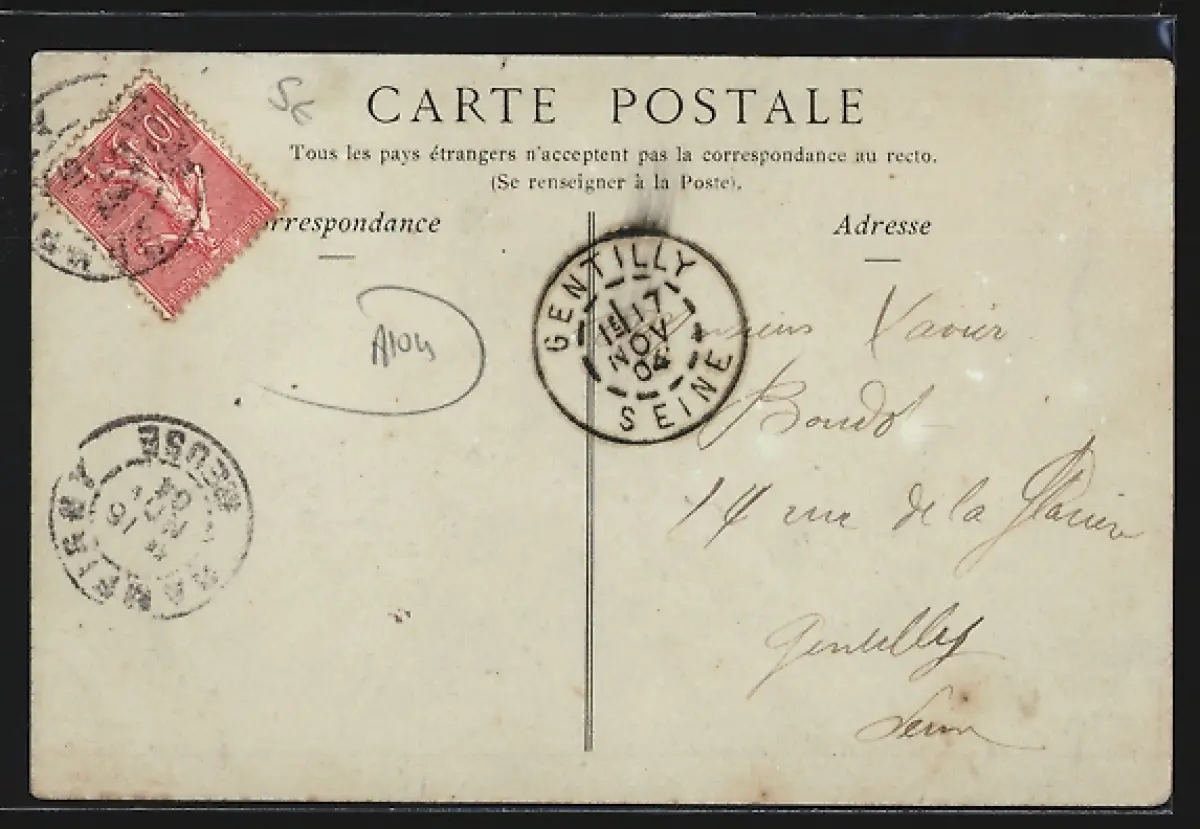 5€
CARTE POSTALE
Tous les pays étrangers n'acceptent pas la correspondance au recto.
(Se renseigner à la Poste).
rrespondance
Adresse
10
GENTILLY
17
NOV
04
SEINE
A104
Monsieur Xavier
Boudot
14 rue de la Glacière
Gentilly
Seine
MEUSE
16
NOV
04